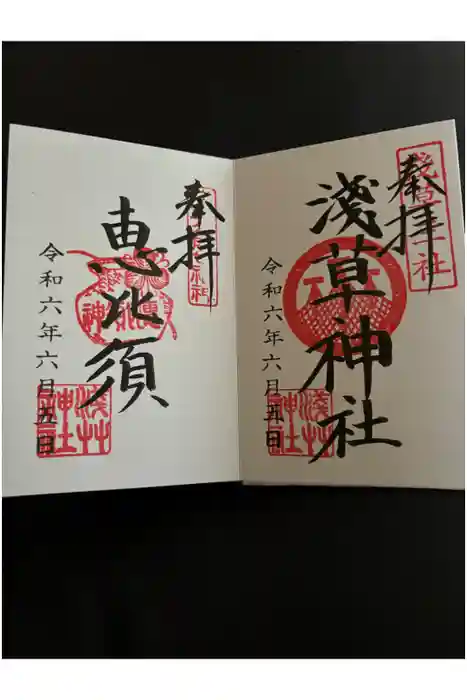 奉拝
浅草神社
令和六年六月五日
浅草神社
奉拝
恵比須
令和六年六月五日
浅草神社